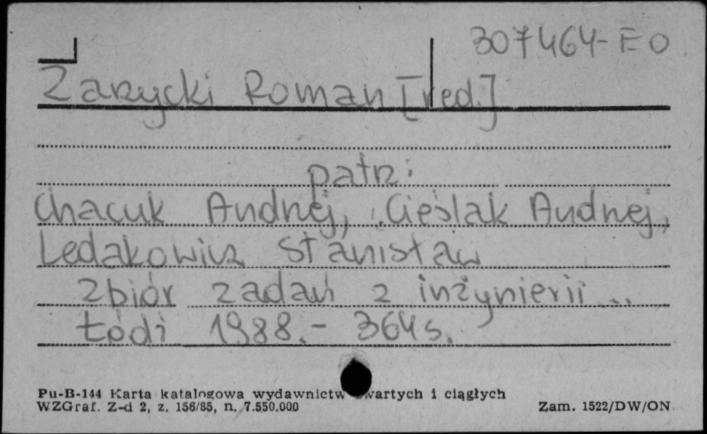 307464-FO
Zarzycki Roman [red.]
patrz:
Chacuk Andrzej, Cieślak Andrzej,
Ledakowicz Stanisław
Zbiór zadań z inżynierii...
Łódź 1988.- 364 s.
Pu-B-144 Karta katalogowa wydawnictw zwartych i ciągłych
WZGraf. Z-d 2, z. 156/85, n. 7.550.000 Zam. 1522/DW/ON